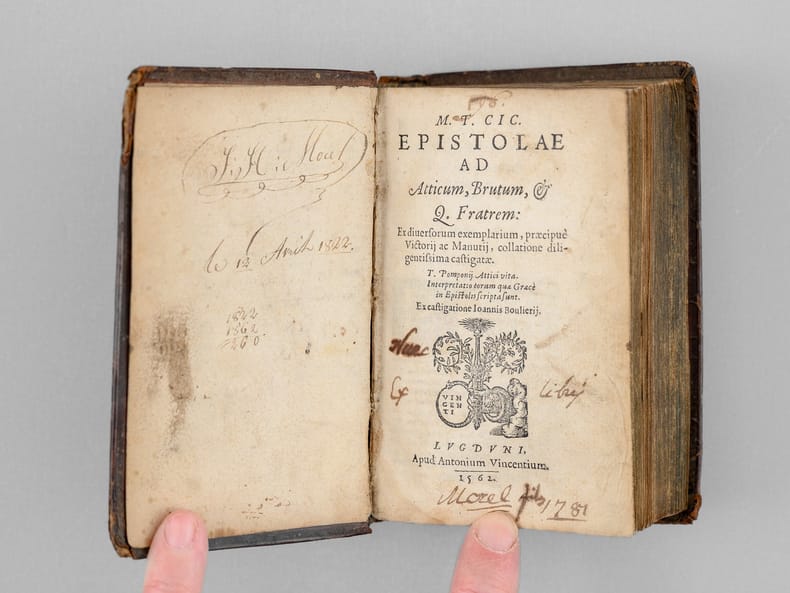 J: H: Morel
le 12 Avril 1822.
1822
1562
260
M. T. CIC.
EPISTOLAE
AD
Atticum, Brutum, &
Q. Fratrem:
Ex diuerſorum exemplarium, præcipuè
Victorij ac Manutij, collatione dili-
gentiſsima caſtigatæ.
T. Pomponij Attici vita.
Interpretatio eorum quæ Græcè
in Epiſtolis ſcripta ſunt.
Ex caſtigatione Ioannis Boulierij.
VIN
CEN
TI
Ex libris
LVGDVNI,
Apud Antonium Vincentium.
1562.
Morel fils 1781